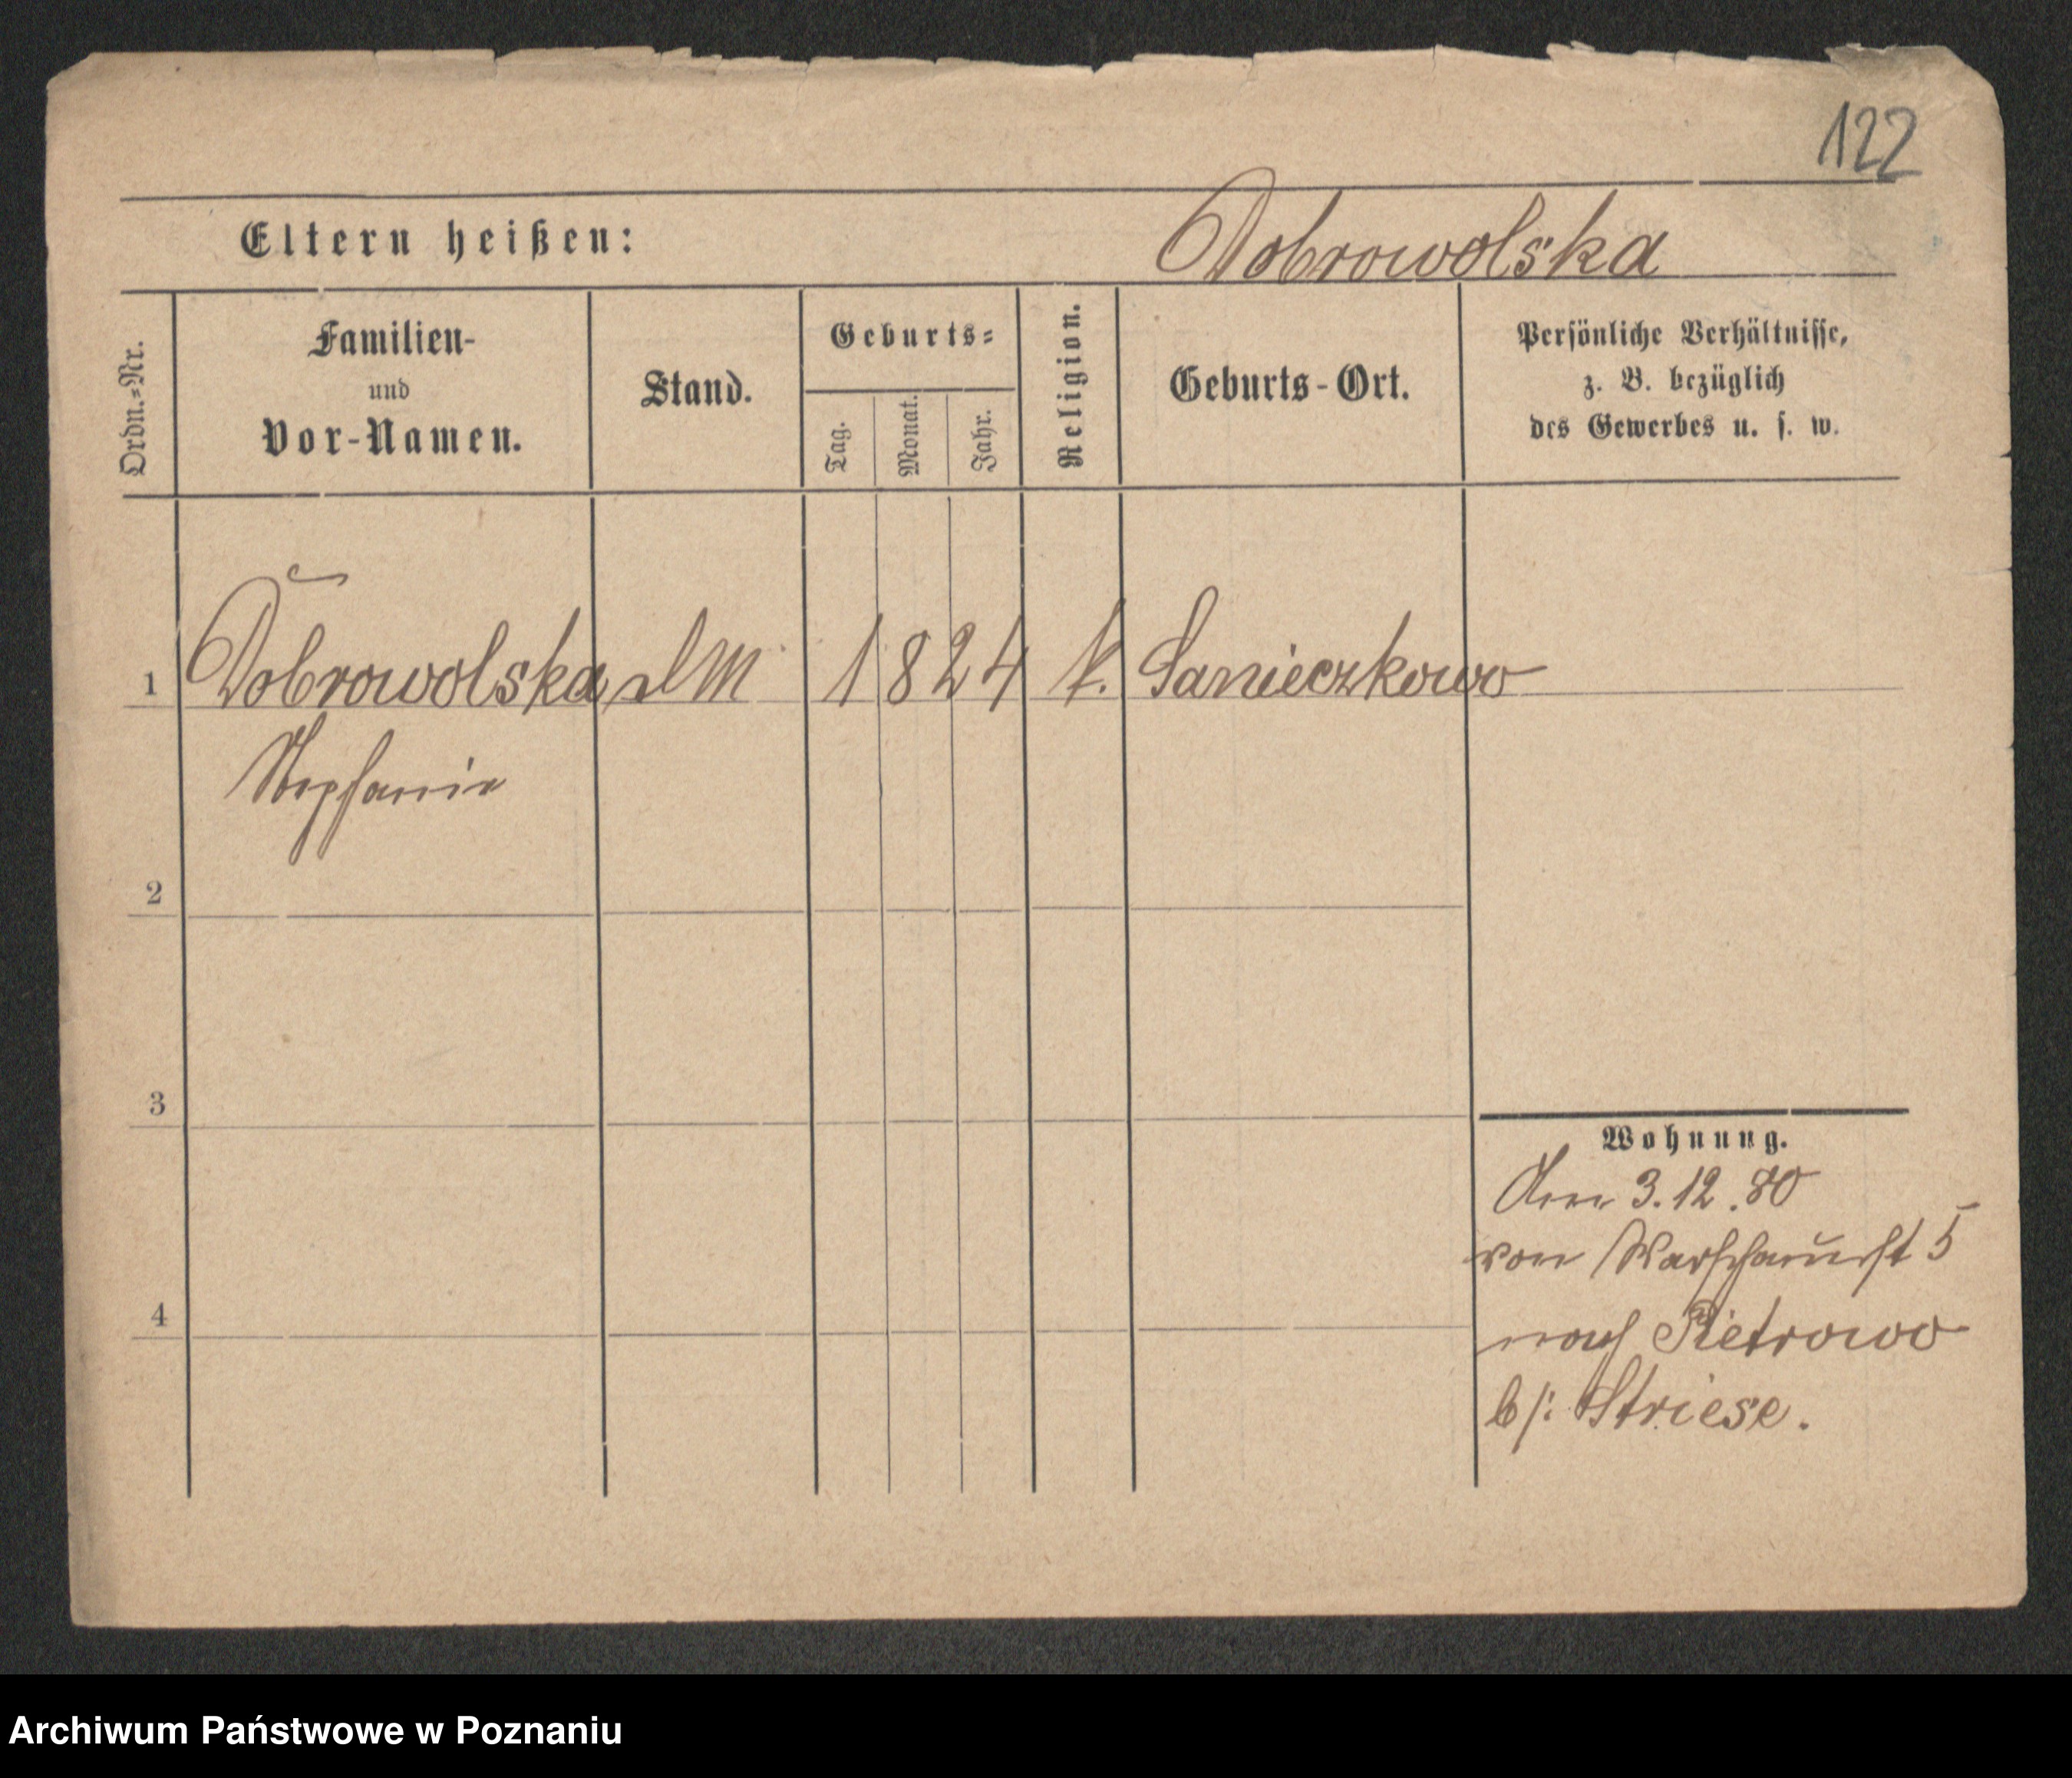 122
Eltern heißen: Dobrowolska
Ordn.=Nr.
Familien-
und
Vor-Namen.
Stand.
Geburts=
Tag.
Monat.
Jahr.
Religion.
Geburts-Ort.
Persönliche Verhältnisse,
z. B. bezüglich
des Gewerbes u. s. w.
1 Dobrowolska 1824 k.
Stephanie
2
3
4
Wohnung.
Den 3.12.80
von Warschauerst 5
nach Pietrowo
b/: Striese.
Archiwum Państwowe w Poznaniu